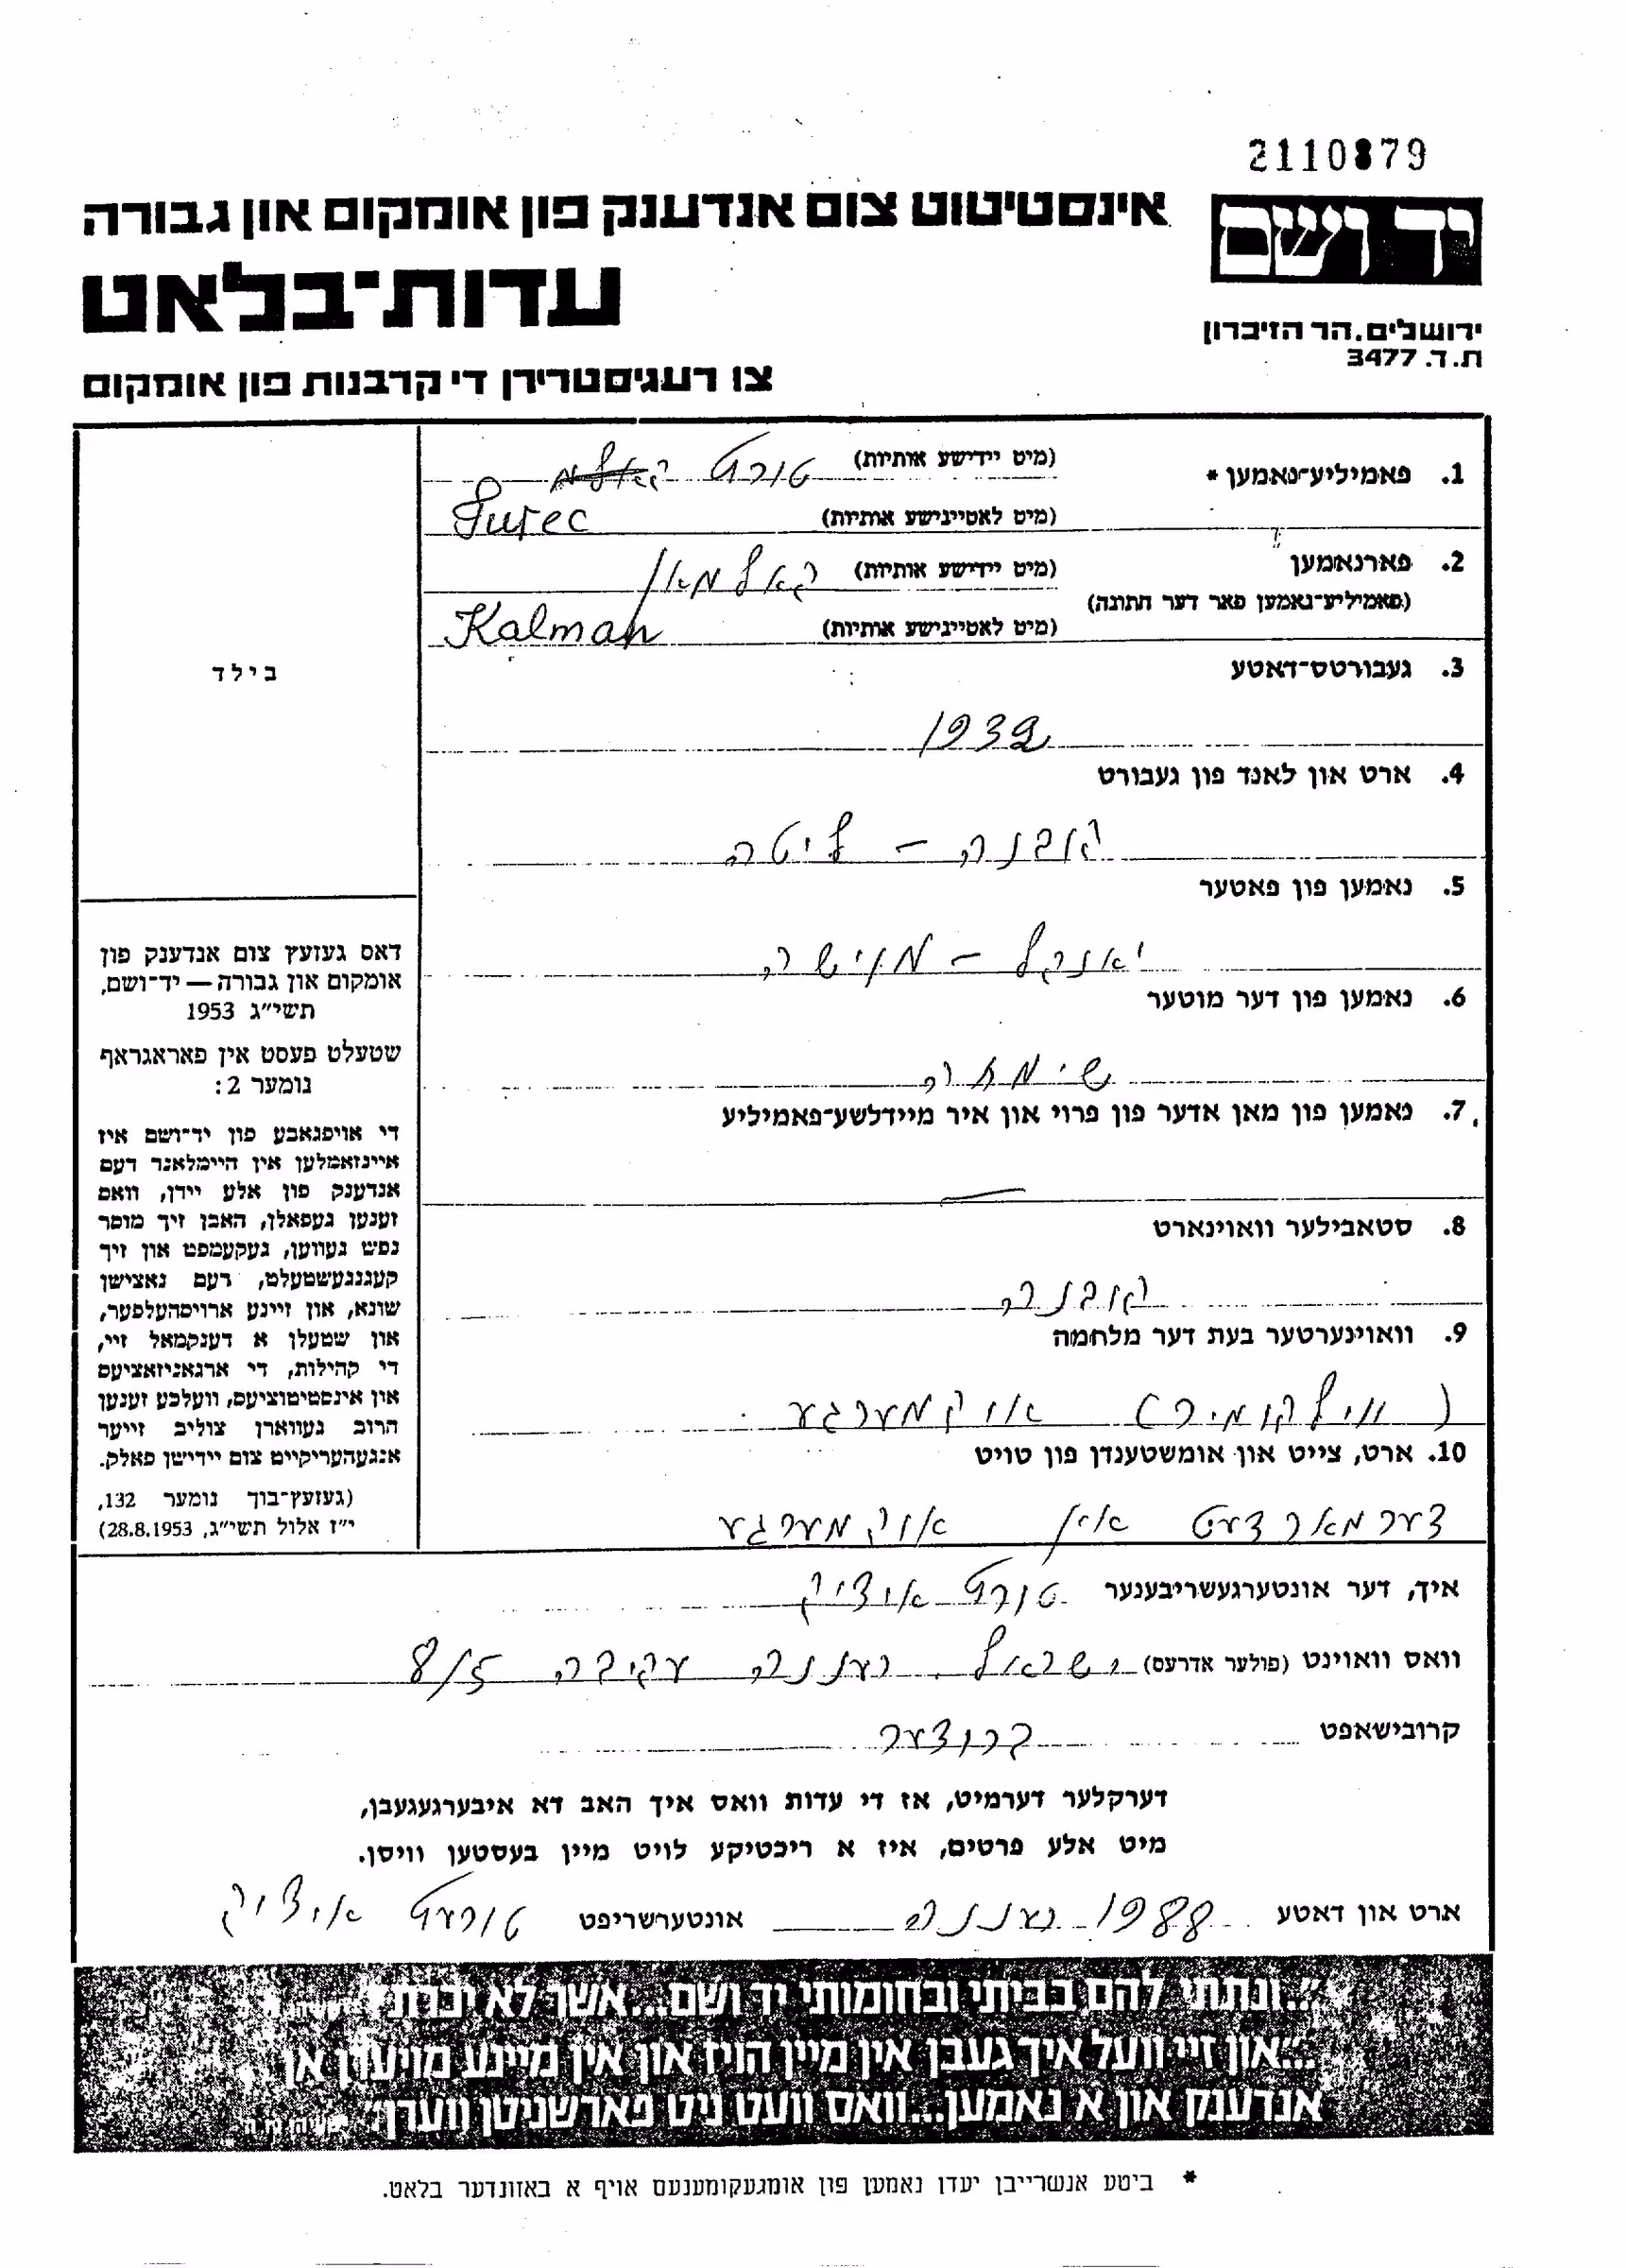 2110879
אינסטיטוט צום אנדענק פון אומקום און גבורה
יד ושם
עדות־בלאט
ירושלים. הר הזיכרון
ת.ד. 3477
צו רעגיסטרירן די קרבנות פון אומקום
1. פאמיליע־נאמען * (מיט יידישע אותיות) טורעץ
(מיט לאטיינישע אותיות) Turec
2. פארנאמען (מיט יידישע אותיות) קאלמאן
(פאמיליע־נאמען פאר דער חתונה)
(מיט לאטיינישע אותיות) Kalman
3. געבורטס־דאטע
1932
4. ארט און לאנד פון געבורט
קובנה – ליטה
5. נאמען פון פאטער
יאנקל – מוישה
6. נאמען פון דער מוטער
7. נאמען פון מאן אדער פון פרוי און איר מיידלשע־פאמיליע
—
8. סטאבילער וווינארט
קובנה
9. וווינערטער בעת דער מלחמה
(ווילקומיר) אוקמערגע
10. ארט, צייט און אומשטענדן פון טויט
דערמארדעט אין אוקמערגע
בילד
דאס געזעץ צום אנדענק פון
אומקום און גבורה — יד־ושם,
תשי״ג 1953
שטעלט פעסט אין פאראגראף
נומער 2:
די אויפגאבע פון יד־ושם איז
איינזאמלען אין היימלאנד דעם
אנדענק פון אלע יידן, וואס
זענען געפאלן, האבן זיך מוסר
נפש געווען, געקעמפט און זיך
קעגנגעשטעלט, דעם נאצישן
שונא, און זיינע ארויסהעלפער,
און שטעלן א דענקמאל זיי,
די קהילות, די ארגאניזאציעס
און אינסטיטוציעס, וועלכע זענען
חרוב געווארן צוליב זייער
אנגעהעריקייט צום יידישן פאלק.
(געזעץ־בוך נומער 132,
י״ז אלול תשי״ג, 28.8.1953)
איך, דער אונטערגעשריבענער טורעץ איציק
וואס וואוינט (פולער אדרעס) ישראל. רעננה עקיבה 8/5
קרובישאפט ברודער
דערקלער דערמיט, אז די עדות וואס איך האב דא איבערגעגעבן,
מיט אלע פרטים, איז א ריכטיקע לויט מיין בעסטען וויסן.
ארט און דאטע 1988 רעננה אונטערשריפט טורעץ איציק
״...ונתתי להם בביתי ובחומותי יד ושם...אשר לא יכרת״
״...און זיי וועל איך געבן אין מיין הויז און אין מיינע מויערן אן
אנדענק און א נאמען...וואס וועט ניט פארשניטן ווערן״
* ביטע אנשרייבן יעדן נאמען פון אומגעקומענעם אויף א באזונדער בלאט.